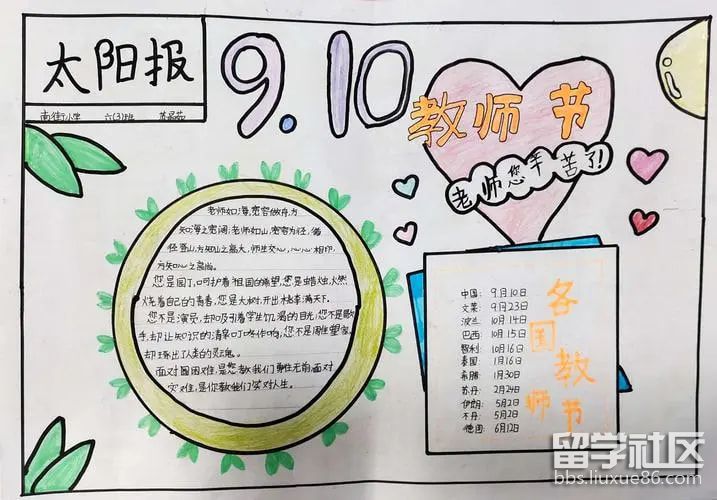 太阳报
南街小学 六(3)班
9.10
教师节
老师您辛苦了!
老师如海,宽容做舟,方
知海之宽阔;老师如山,宽容为径,循
径登山,方知山之高大,师生交心,心心相印,
方知心之高尚。
您是园丁,呵护着祖国的希望,您是蜡烛,燃
烧着自己的青春,您是大树,开出桃李满天下。
您不是演员,却吸引着学生饥渴的目光,您不是歌
手,却让知识的清泉叮咚作响,您不是
却
人类的灵魂。
面对困难,是您教我们勇往无前,面对
灾难,是您教我们笑对人生。
各国教师节
中国: 9月10日
文莱: 9月23日
波兰: 10月14日
巴西: 10月15日
智利: 10月16日
泰国: 1月16日
希腊: 1月30日
苏丹: 2月24日
伊朗: 5月2日
不丹: 5月2日
德国: 6月12日
留学社区
bbs.liuxue86.com